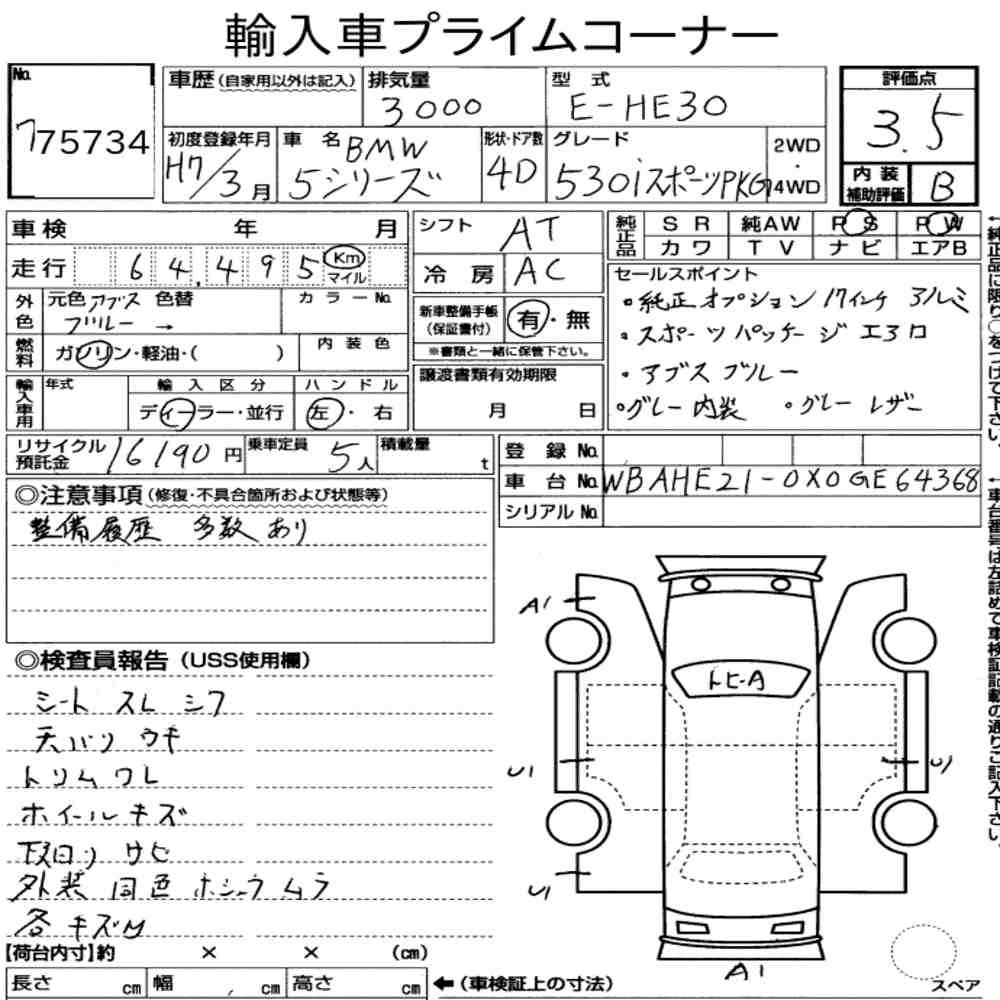 輸入車プライムコーナー
No.
775734
車歴 (自家用以外は記入)
排気量
3000
型式
E-HE30
評価点
3.5
初度登録年月
H7/3月
車名
BMW
5シリーズ
形状・ドア数
4D
グレード
530iスポーツPKG
2WD
・
4WD
内装
補助評価
B
車検 年 月
シフト
AT
純正品
SR 純AW PS PW
カワ TV ナビ エアB
走行 64,495 Km
マイル
冷房
AC
セールスポイント
・純正オプション 17インチ アルミ
・スポーツパッケージ エアロ
・アブスブルー
・グレー内装 ・グレーレザー
外色
元色 アブス 色替
ブルー →
カラーNo.
新車整備手帳
(保証書付)
有・無
※書類と一緒に保管下さい。
燃料
ガソリン・軽油・( )
内装色
輸入車用
年式
輸入区分
ディーラー・並行
ハンドル
左・右
譲渡書類有効期限
月 日
リサイクル
預託金
16190円
乗車定員
5人
積載量
t
登録No.
車台No.
WBAHE21-0X0GE64368
シリアルNo.
◎注意事項 (修復・不具合箇所および状態等)
整備履歴 多数あり
◎検査員報告 (USS使用欄)
シート スレ シワ
天バリ ウキ
トリムワレ
ホイールキズ
下回リ サビ
外装 同色 ホシュウ ムラ
各キズM
A1
トビ-A
U1
U1
U1
A1
【荷台内寸】約 × × (cm)
長さ cm 幅 cm 高さ cm
←(車検証上の寸法)
スペア
←純正品に限り○をつけて下さい。
←車台番号は左詰めで車検証記載の通りご記入下さい。